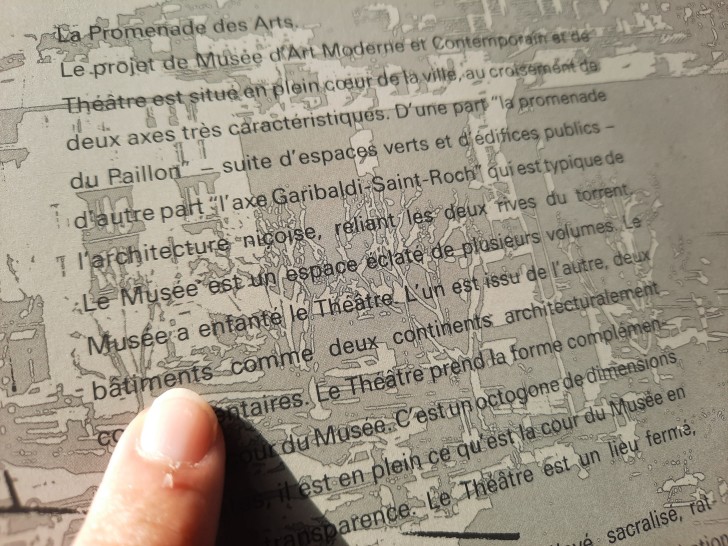 La Promenade des Arts.
Le projet de Musée d'Art Moderne et Contemporain et de
Théâtre est situé en plein cœur de la ville, au croisement de
deux axes très caractéristiques. D'une part "la promenade
du Paillon" – suite d'espaces verts et d'édifices publics –
d'autre part "l'axe Garibaldi-Saint-Roch" qui est typique de
l'architecture niçoise, reliant les deux rives du torrent.
Le Musée est un espace éclaté de plusieurs volumes. Le
Musée a enfanté le Théâtre. L'un est issu de l'autre, deux
bâtiments comme deux continents architecturalement
entaires. Le Théâtre prend la forme complémen-
our du Musée. C'est un octogone de dimensions
il est en plein ce qu'est la cour du Musée en
transparence. Le Théâtre est un lieu fermé,
sacralisé, rat-